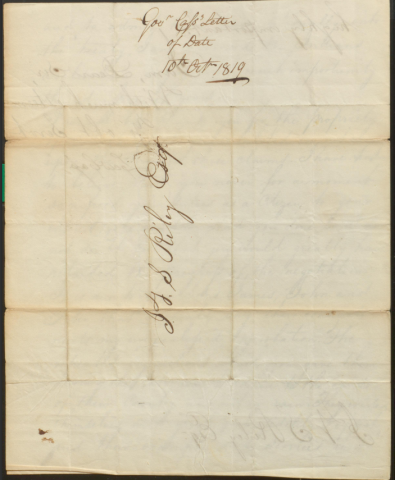 Govr Cass' Letter
of Date
10th Oct 1819
J. F. S Riley Esq